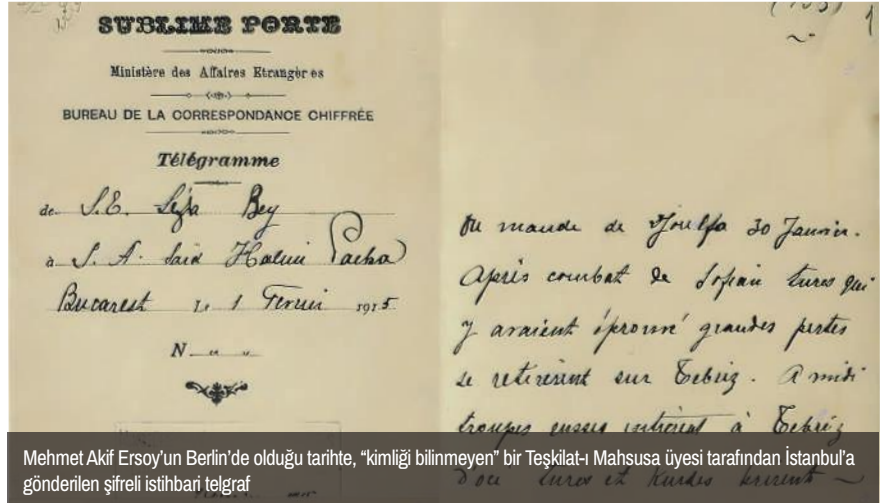 SUBLIME PORTE
Ministère des Affaires Etrangères
BUREAU DE LA CORRESPONDANCE CHIFFRÉE
Télégramme
de S.E. Bey
à S. A. Said Halim Pacha
Bucarest Le 1 1915
N
On mande de Djoulfa 30 Janvier.
Après combat de Sofian turcs qui
y avaient éprouvé grandes pertes
se retirèrent sur Tebriz. A midi
troupes russes entrèrent à Tebriz
d'où turcs et Kurdes
Mehmet Akif Ersoy'un Berlin'de olduğu tarihte, “kimliği bilinmeyen” bir Teşkilat-ı Mahsusa üyesi tarafından İstanbul'a
gönderilen şifreli istihbari telgraf